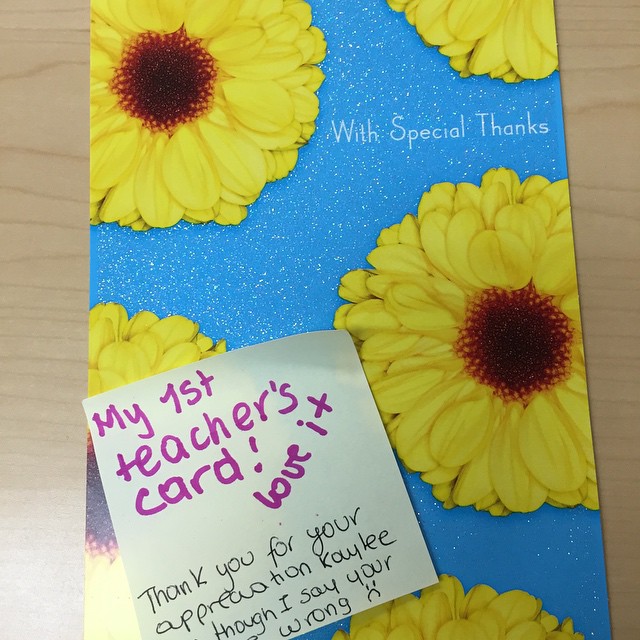 With Special Thanks
My 1st
teacher's
card!
love it
Thank you for your
appreciation Kaylee
though I say your
wrong